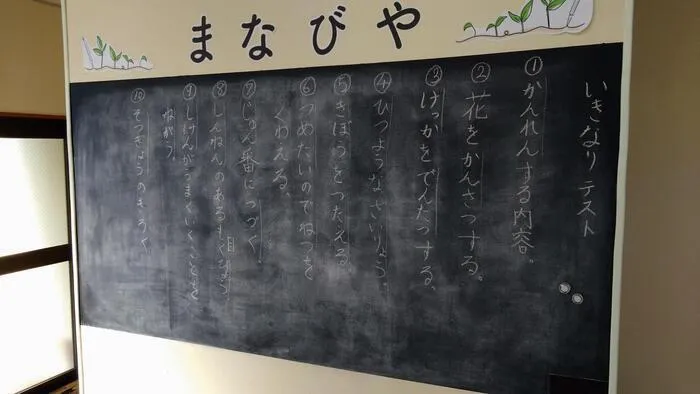 まなびや
いきなりテスト
①かんれんする内容。
②花をかんさつする。
③けっかをでんたつする。
④ひつようなざいりょう。
⑤きぼうをつたえる。
⑥つめたいのでねつを
くわえる。
⑦じゅん番につづく。
⑧しんねんのあるもくひょう
目
⑨しけんがうまくいくことを
ねがう。
⑩そつぎょうのきろく